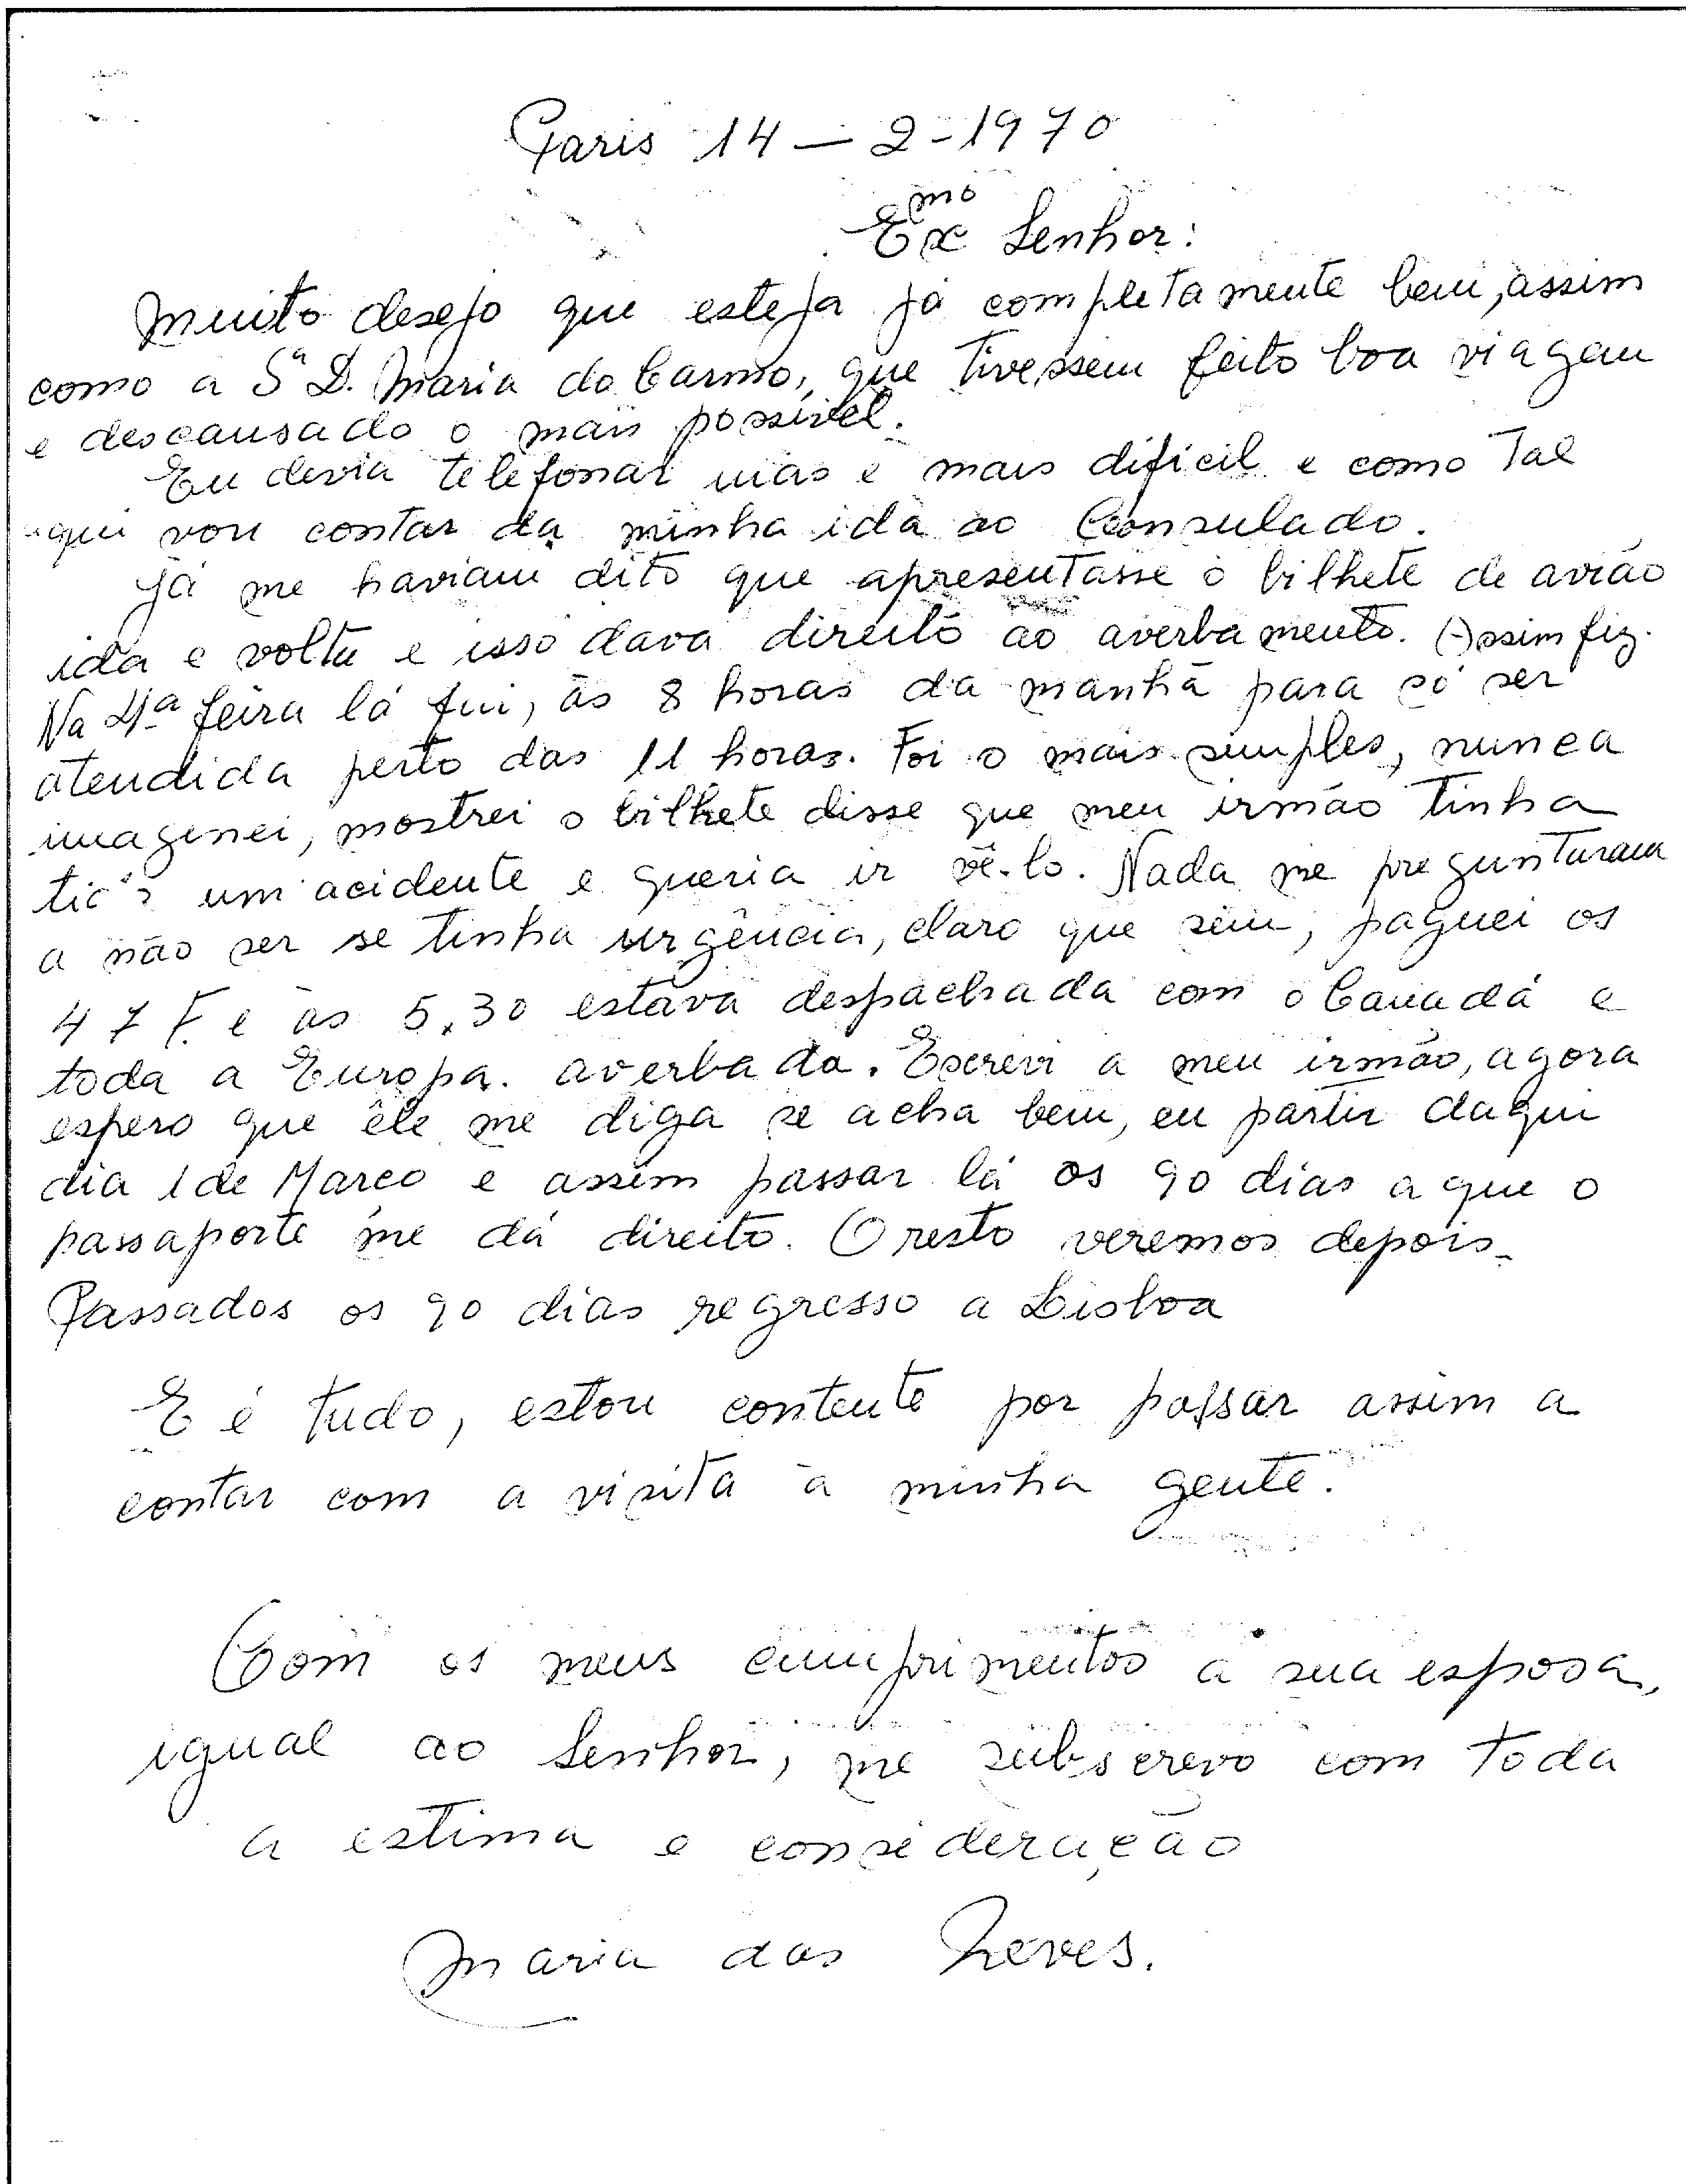 Paris 14 — 2 - 1970
Exmo Senhor:
Muito desejo que esteja já completamente bem, assim
como a Sª D. Maria do Carmo, que tivessem feito boa viagem
e descansado o mais possivel.
Eu devia telefonar mas e mais dificil e como tal
aqui vou contar da minha ida ao Consulado.
Já me haviam dito que apresentasse o bilhete de avião
ida e volta e isso dava direito ao averbamento. Assim fiz.
Na 4ª feira lá fui, às 8 horas da manhã para só ser
atendida perto das 11 horas. Foi o mais simples, nunca
imaginei, mostrei o bilhete disse que meu irmão tinha
um acidente e queria ir vê-lo. Nada me preguntaram
a não ser se tinha urgência, claro que sim, paguei os
47 F. e às 5,30 estava despachada com o Canadá e
toda a Europa. averbada. Escrevi a meu irmão, agora
espero que êle me diga se acha bem, eu partir daqui
dia 1 de Março e assim passar lá os 90 dias a que o
passaporte me dá direito. O resto veremos depois.
Passados os 90 dias regresso a Lisboa
E é tudo, estou contente por passar assim a
contar com a visita à minha gente.
Com os meus cumprimentos a sua esposa,
igual ao Senhor, me subscrevo com toda
a estima e consideração
Maria das Neves.